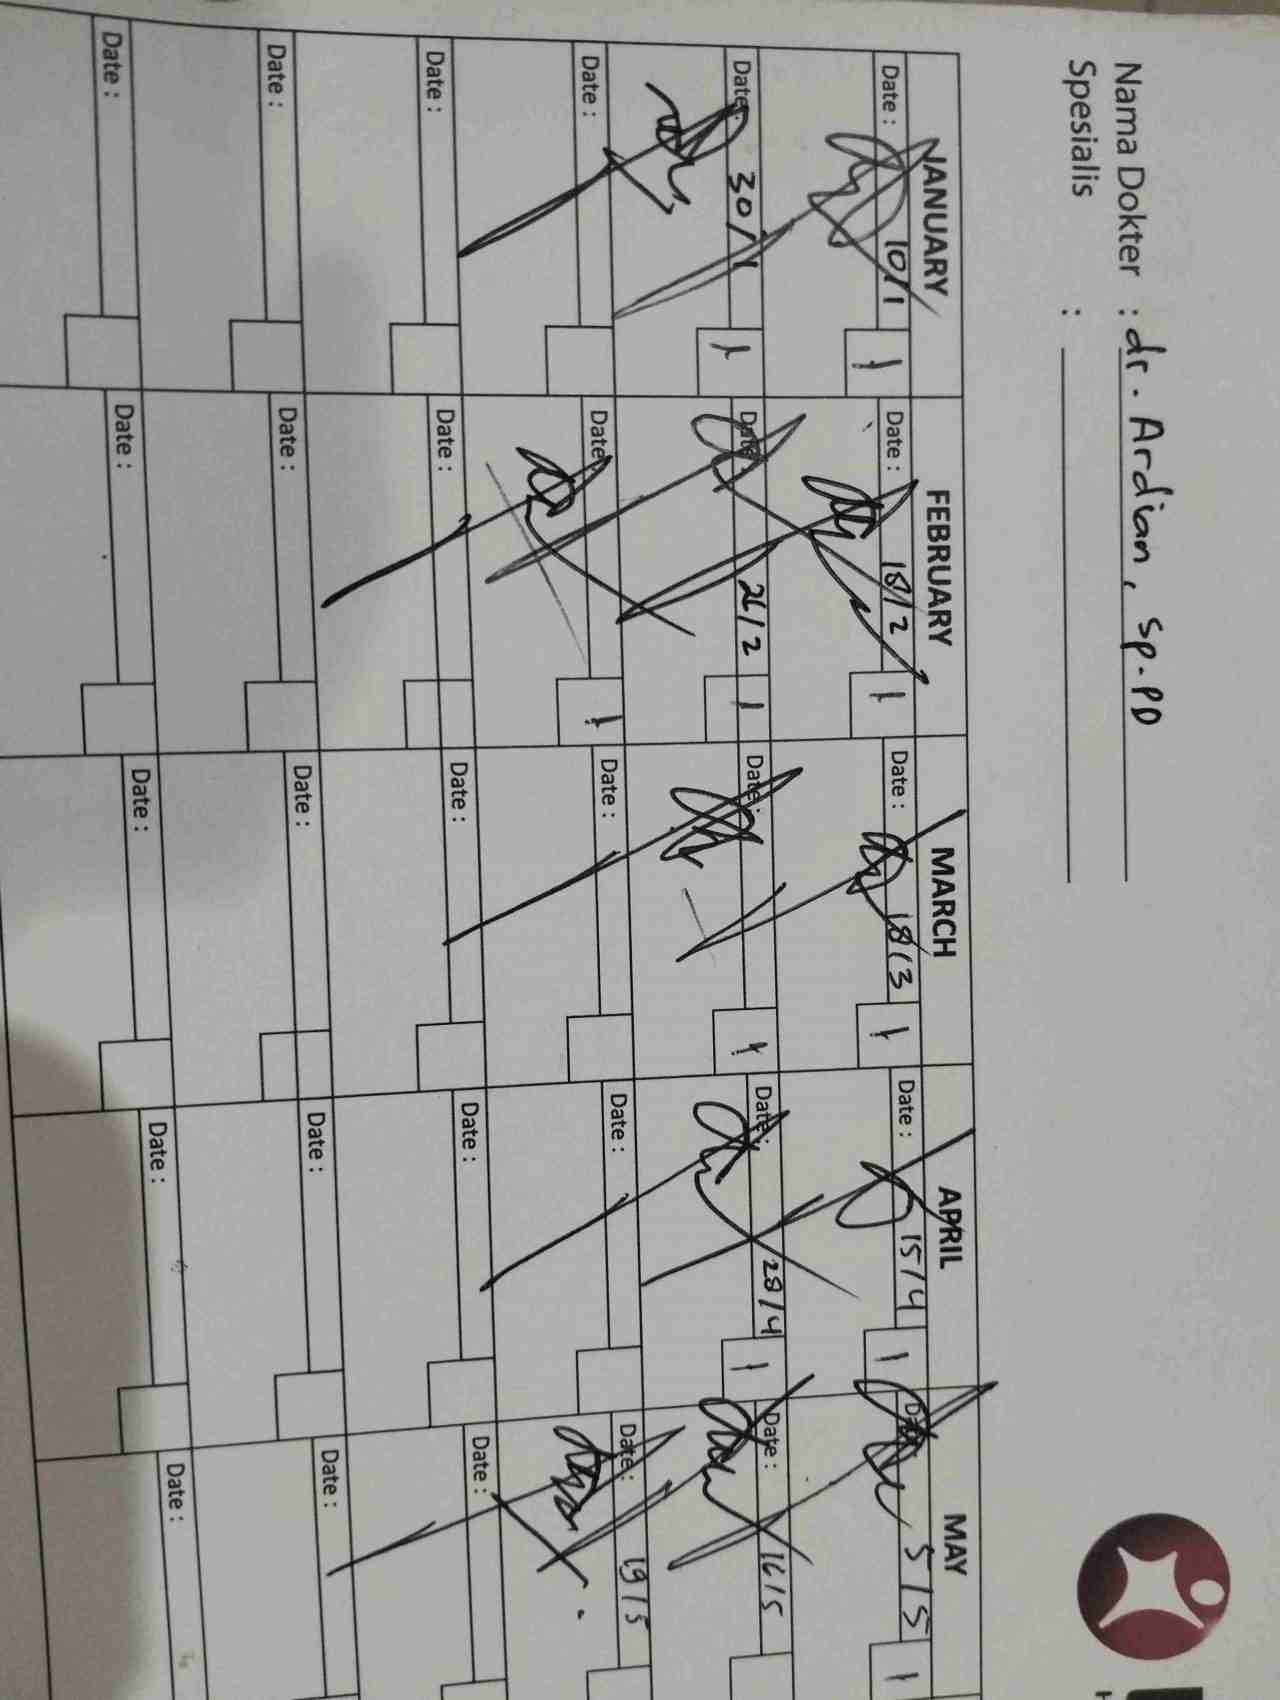 Nama Dokter : dr. Ardian, Sp.PD
Spesialis :
JANUARY FEBRUARY MARCH APRIL MAY
Date : 10/1 1 Date : 18/2 1 Date : 18/3 1 Date : 15/4 1 Date 5/5 1
Date : 30/1 1 Date 26/2 1 Date : 1 Date : 28/4 1 Date : 16/5
Date : Date 1 Date : Date : Date : 19/5
Date : Date : Date : Date : Date :
Date : Date : Date : Date : Date :
Date : Date : Date : Date : Date :